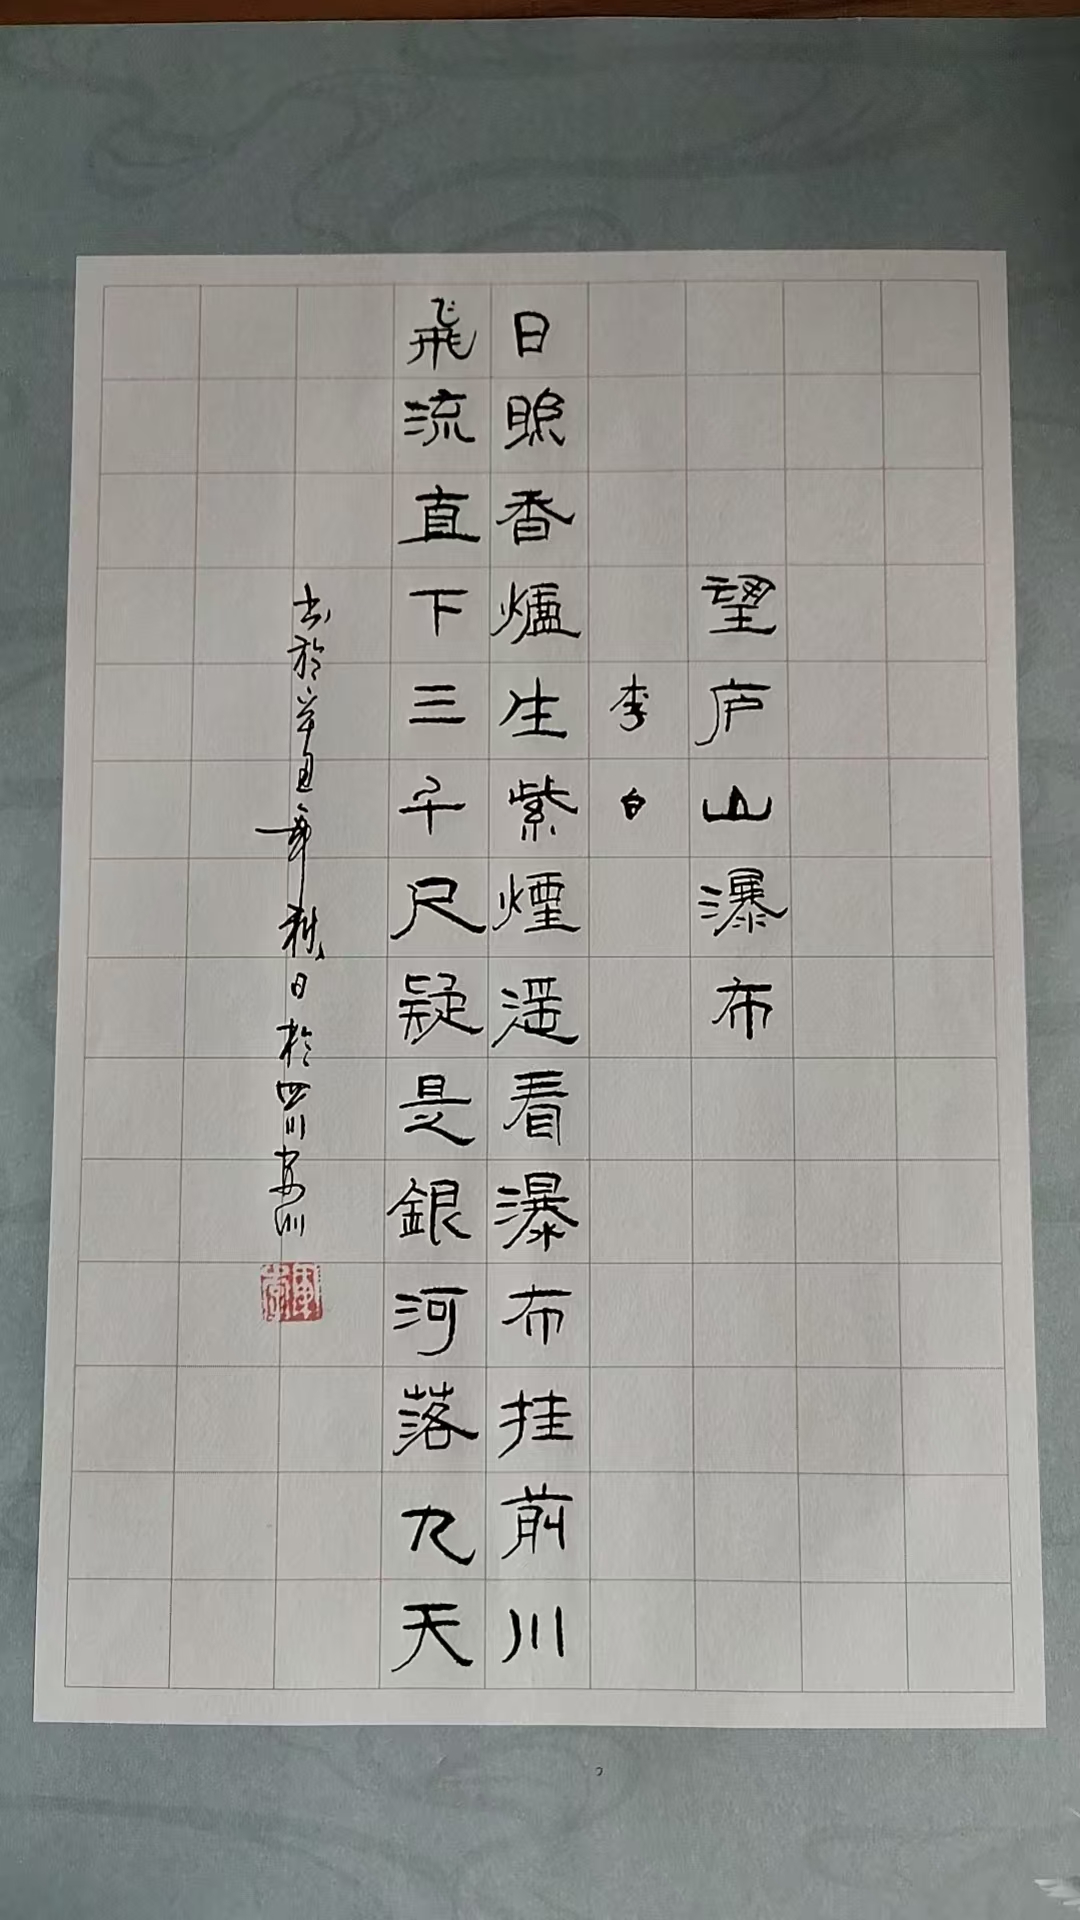 望庐山瀑布
李白
日照香爐生紫煙遥看瀑布挂前川
飛流直下三千尺疑是銀河落九天
书於辛丑年秋日於四川